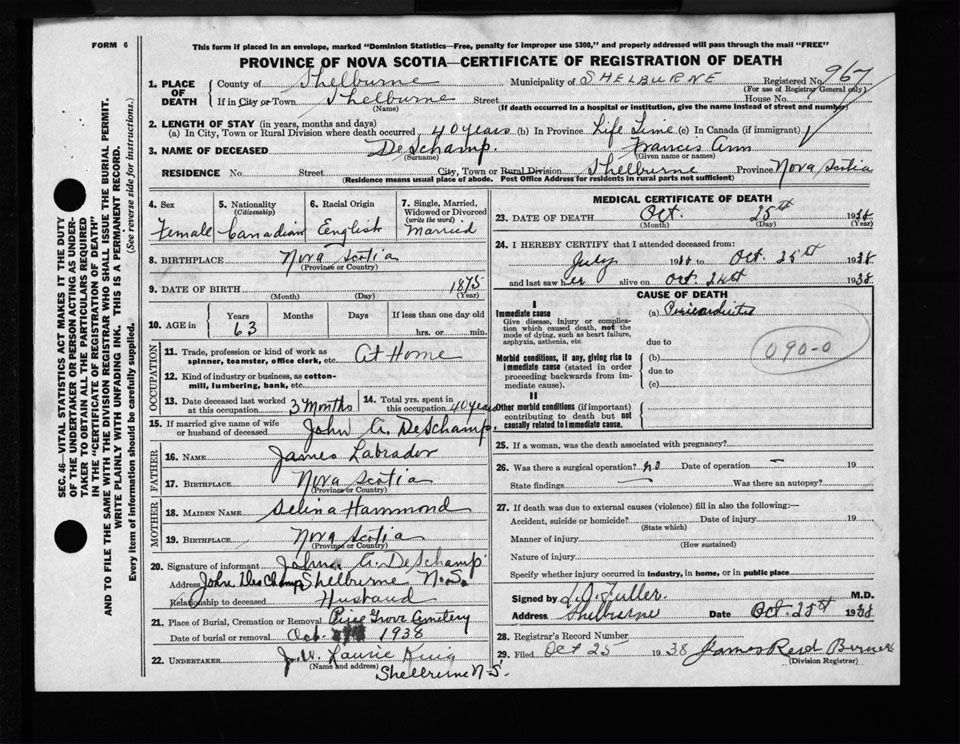 FORM 6
This form if placed in an envelope, marked "Dominion Statistics—Free, penalty for improper use $300," and properly addressed will pass through the mail "FREE"
PROVINCE OF NOVA SCOTIA—CERTIFICATE OF REGISTRATION OF DEATH
SEC. 46—VITAL STATISTICS ACT MAKES IT THE DUTY
OF THE UNDERTAKER OR PERSON ACTING AS UNDER-
TAKER TO OBTAIN ALL THE PARTICULARS REQUIRED
IN THE "CERTIFICATE OF REGISTRATION OF DEATH"
AND TO FILE THE SAME WITH THE DIVISION REGISTRAR WHO SHALL ISSUE THE BURIAL PERMIT.
WRITE PLAINLY WITH UNFADING INK. THIS IS A PERMANENT RECORD.
Every item of information should be carefully supplied. (See reverse side for instructions.)
1. PLACE OF DEATH County of Shelburne Municipality of SHELBURNE Registered No. 967
(For use of Registrar General only)
If in City or Town Shelburne Street House No.
(Name) (If death occurred in a hospital or institution, give the name instead of street and number)
2. LENGTH OF STAY (in years, months and days)
(a) In City, Town or Rural Division where death occurred 40 years (b) In Province Life Time (c) In Canada (if immigrant)
3. NAME OF DECEASED DeSchamp. Francis Ann
(Surname) (Given name or names)
RESIDENCE No. Street City, Town or Rural Division Shelburne Province Nova Scotia
(Residence means usual place of abode. Post Office Address for residents in rural parts not sufficient)
4. Sex Female
5. Nationality (Citizenship) Canadian
6. Racial Origin English
7. Single, Married, Widowed or Divorced (write the word) Married
8. BIRTHPLACE Nova Scotia
(Province or Country)
9. DATE OF BIRTH 1875
(Month) (Day) (Year)
10. AGE in Years Months Days If less than one day old
63 hrs. or min.
OCCUPATION
11. Trade, profession or kind of work as spinner, teamster, office clerk, etc. At Home
12. Kind of industry or business, as cotton-mill, lumbering, bank, etc.
13. Date deceased last worked at this occupation 3 Months
14. Total yrs. spent in this occupation 40 years
15. If married give name of wife or husband of deceased John A. DeSchamp.
FATHER
16. NAME James Labrador
17. BIRTHPLACE Nova Scotia
(Province or Country)
MOTHER
18. MAIDEN NAME Selina Hammond
19. BIRTHPLACE Nova Scotia
(Province or Country)
20. Signature of informant John A. DeSchamp
Address John DesChamp Shelburne N.S.
Relationship to deceased Husband
21. Place of Burial, Cremation or Removal Pine Grove Cemetery
Date of burial or removal Oct 1938
22. UNDERTAKER J. W. Laurie
(Name and address)
Shelburne N.S.
MEDICAL CERTIFICATE OF DEATH
23. DATE OF DEATH Oct. 25th 1938
(Month) (Day) (Year)
24. I HEREBY CERTIFY that I attended deceased from:
July 1938 to Oct. 25th 1938
and last saw her alive on Oct. 24th 1938
CAUSE OF DEATH
I
Immediate cause
Give disease, injury or complication which caused death, not the mode of dying, such as heart failure, asphyxia, asthenia, etc.
(a) Pericarditis
due to
090-0
Morbid conditions, if any, giving rise to immediate cause (stated in order proceeding backwards from immediate cause).
(b)
due to
(c)
II
Other morbid conditions (if important) contributing to death but not causally related to immediate cause.
25. If a woman, was the death associated with pregnancy?
26. Was there a surgical operation? no Date of operation — 19
State findings Was there an autopsy?
27. If death was due to external causes (violence) fill in also the following:—
Accident, suicide or homicide? Date of injury 19
(State which)
Manner of injury
(How sustained)
Nature of injury
Specify whether injury occurred in industry, in home, or in public place
Signed by L.O. Fuller. M.D.
Address Shelburne Date Oct. 25th 1938
28. Registrar's Record Number
29. Filed Oct 25 1938 James Reid
(Division Registrar)